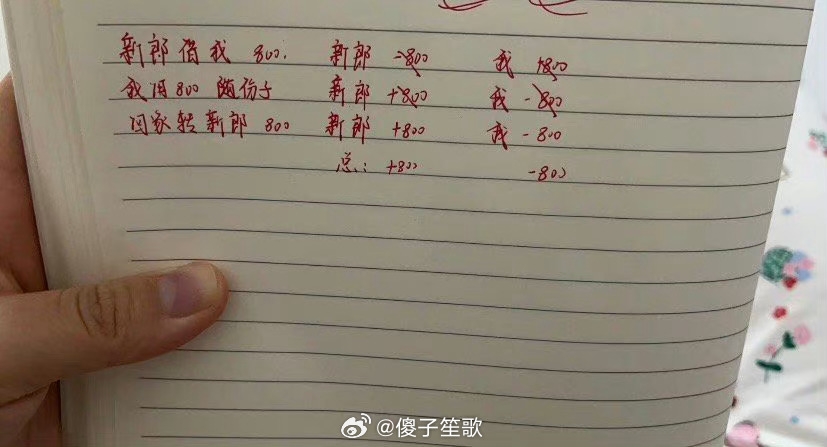 新郎借我 800. 新郎 -800 我 +800
我用800 随份子 新郎 +800 我 -800
回家转新郎 800 新郎 +800 我 -800
总: +800 -800
@傻子笙歌